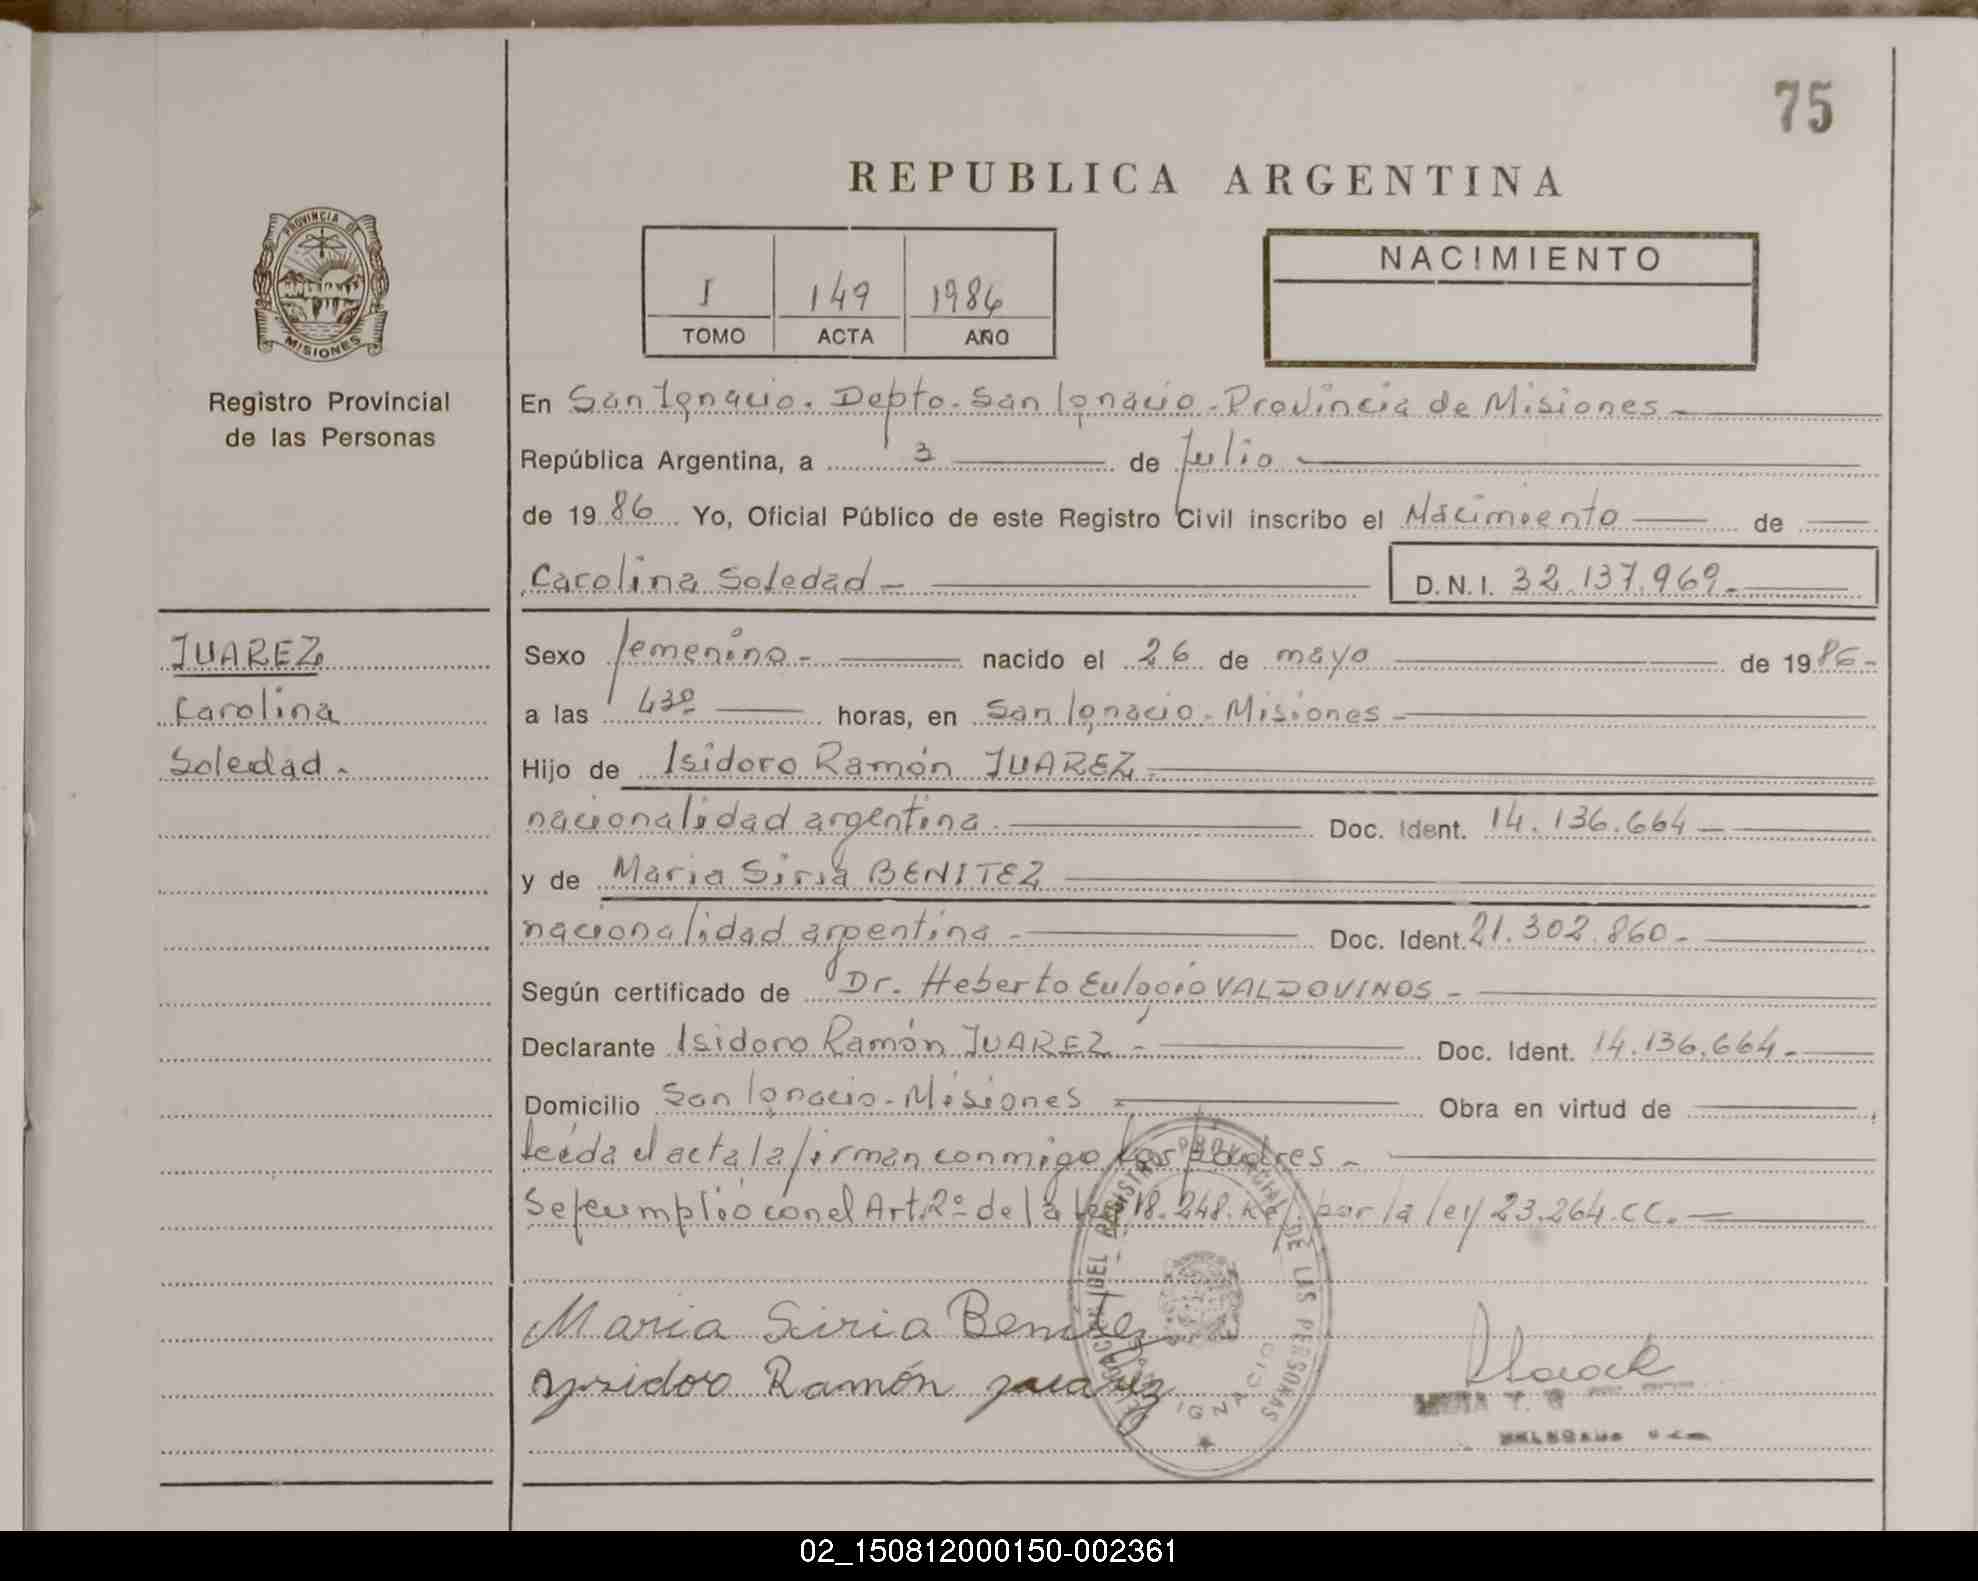 75
REPUBLICA ARGENTINA
PROVINCIA DE
MISIONES
Registro Provincial
de las Personas
I 149 1986
TOMO ACTA AÑO
NACIMIENTO
En San Ignacio. Depto. San Ignacio. Provincia de Misiones
República Argentina, a 3 de Julio
de 1986 Yo, Oficial Público de este Registro Civil inscribo el Nacimiento de
Carolina Soledad D.N.I. 32.137.969
JUAREZ
Carolina
Soledad.
Sexo femenino nacido el 26 de mayo de 1986
a las 4³⁰ horas, en San Ignacio - Misiones
Hijo de Isidoro Ramón JUAREZ
nacionalidad argentina Doc. Ident. 14.136.664
y de Maria Siria BENITEZ
nacionalidad argentina Doc. Ident. 21.302.860
Según certificado de Dr. Heberto Eulogio VALDOVINOS
Declarante Isidoro Ramón JUAREZ Doc. Ident. 14.136.664
Domicilio San Ignacio - Misiones Obra en virtud de
leída el acta la firman conmigo los padres
Se cumplió con el Art. 2º de la ley 18.248. por la ley 23.264.CC.
Maria Siria Benitez
Ysidoro Ramón Juarez
DEL REGISTRO PROVINCIAL DE LAS PERSONAS
IGNACIO
02_150812000150-002361